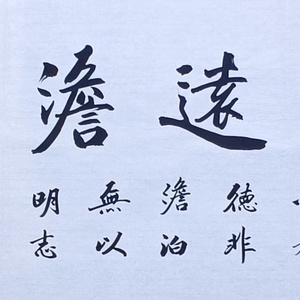 遠澹
德非
澹泊
無以
明志